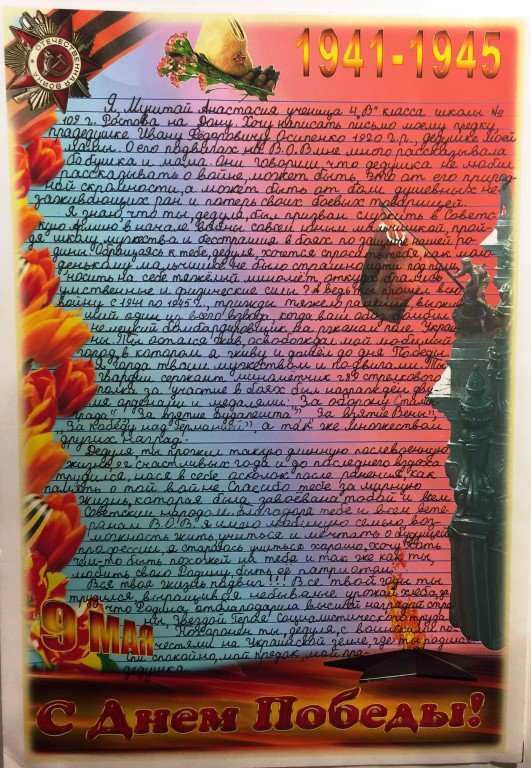 ОТЕЧЕСТВЕННАЯ ВОЙНА
1941-1945
Я, Мунтай Анастасия ученица 4 "В" класса школы №
109 г. Ростова на Дону. Хочу написать письмо моему предку
прадедушке Ивану Федоровичу Осипенко 1920 г.р., дедушке моей
мамы. О его подвигах на В.О.В мне много рассказывали
бабушка и мама. Они говорили что дедушка не любил
рассказывать о войне, может быть это от его природ-
ной скромности, а может быть от боли душевных не-
заживающих ран и потерь своих боевых товарищей.
Я знаю, что ты, дедуля, был призван служить в Советс-
кую армию в начале войны совсем юным мальчишкой, прой-
дя школу мужества и бесстрашия в боях по защите нашей ро-
дины. Обращаясь к тебе, дедуля, хочется спросить тебя, как моло-
денькому мальчишке не было страшно идти под пули,
носить на себе тяжелый миномёт, откуда брались
умственные и физические силы? А ведь ты прошел всю
войну с 1941 по 1945 г., трижды тяжело ранения, выжив-
ший один из всего взвода, когда ваш обоз бомбил
немецкий бомбардировщик на ржаном поле Украи-
ны. Ты остался жив, освобождал мой любимый
город, в котором я живу и дошел до дня Победы.
Я горда твоим мужеством и подвигами. Ты
гвардии сержант, минометчик 289 стрелкового
полка за участие в боях был награжден дву-
мя орденами и медалями: "За оборону Стален-
града", "За взятие Будапешта", "За взятие Вены",
"За победу над Германией", а так же множеством
других наград.
Дедуля, ты прожил такую длинную послевоенную
жизнь, 22 счастливых года и до последнего вздоха
трудился, нося в себе осколок после ранения, как
память о той войне. Спасибо тебе за мирную
жизнь, которая была завоевана тобой и всем
Советским народом. Благодаря тебе и всем вете-
ранам В.О.В. я имею любимую семью, воз-
можность жить, учиться и мечтать о будущей
профессии, я стараюсь учиться хорошо, хочу хоть
чем-то быть похожей на тебя и так же как ты,
любить свою Родину, быть её патриотом.
Вся твоя жизнь подвиг!!! Все твои годы ты
трудился, выращивая небывалые урожаи хлеба, за
что Родина отблагодарила высшей наградой стра-
ны, Звездой Героя Социалистического труда.
Похоронен ты, дедуля, с воинскими по-
честями на Украинской земле, где ты родился.
Спи спокойно, мой предок, мой пра-
дедушка.
9 МАЯ
С Днем Победы!